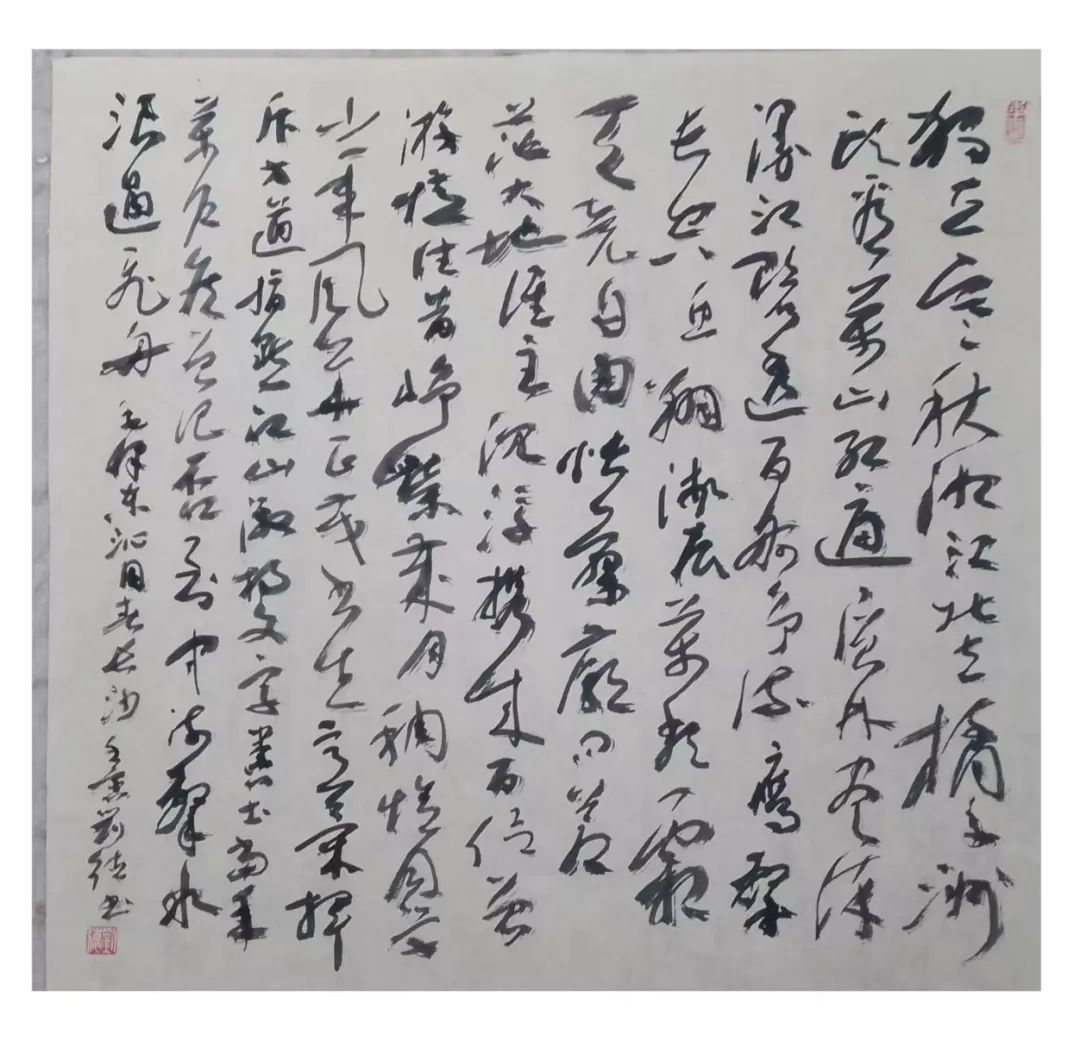 獨立寒秋湘江北去橘子洲
頭看萬山紅遍層林盡染
漫江碧透百舸爭流鷹擊
长空魚翔淺底萬類霜
天競自由悵寥廓問蒼
茫大地誰主沉浮攜來百侣曾
游憶往昔崢嶸歲月稠恰同學
少年風華正茂书生意氣揮
斥方遒指點江山激揚文字糞土當年
萬戶侯曾記否到中流擊水
浪遏飛舟 毛澤東沁園春长沙 劉 书